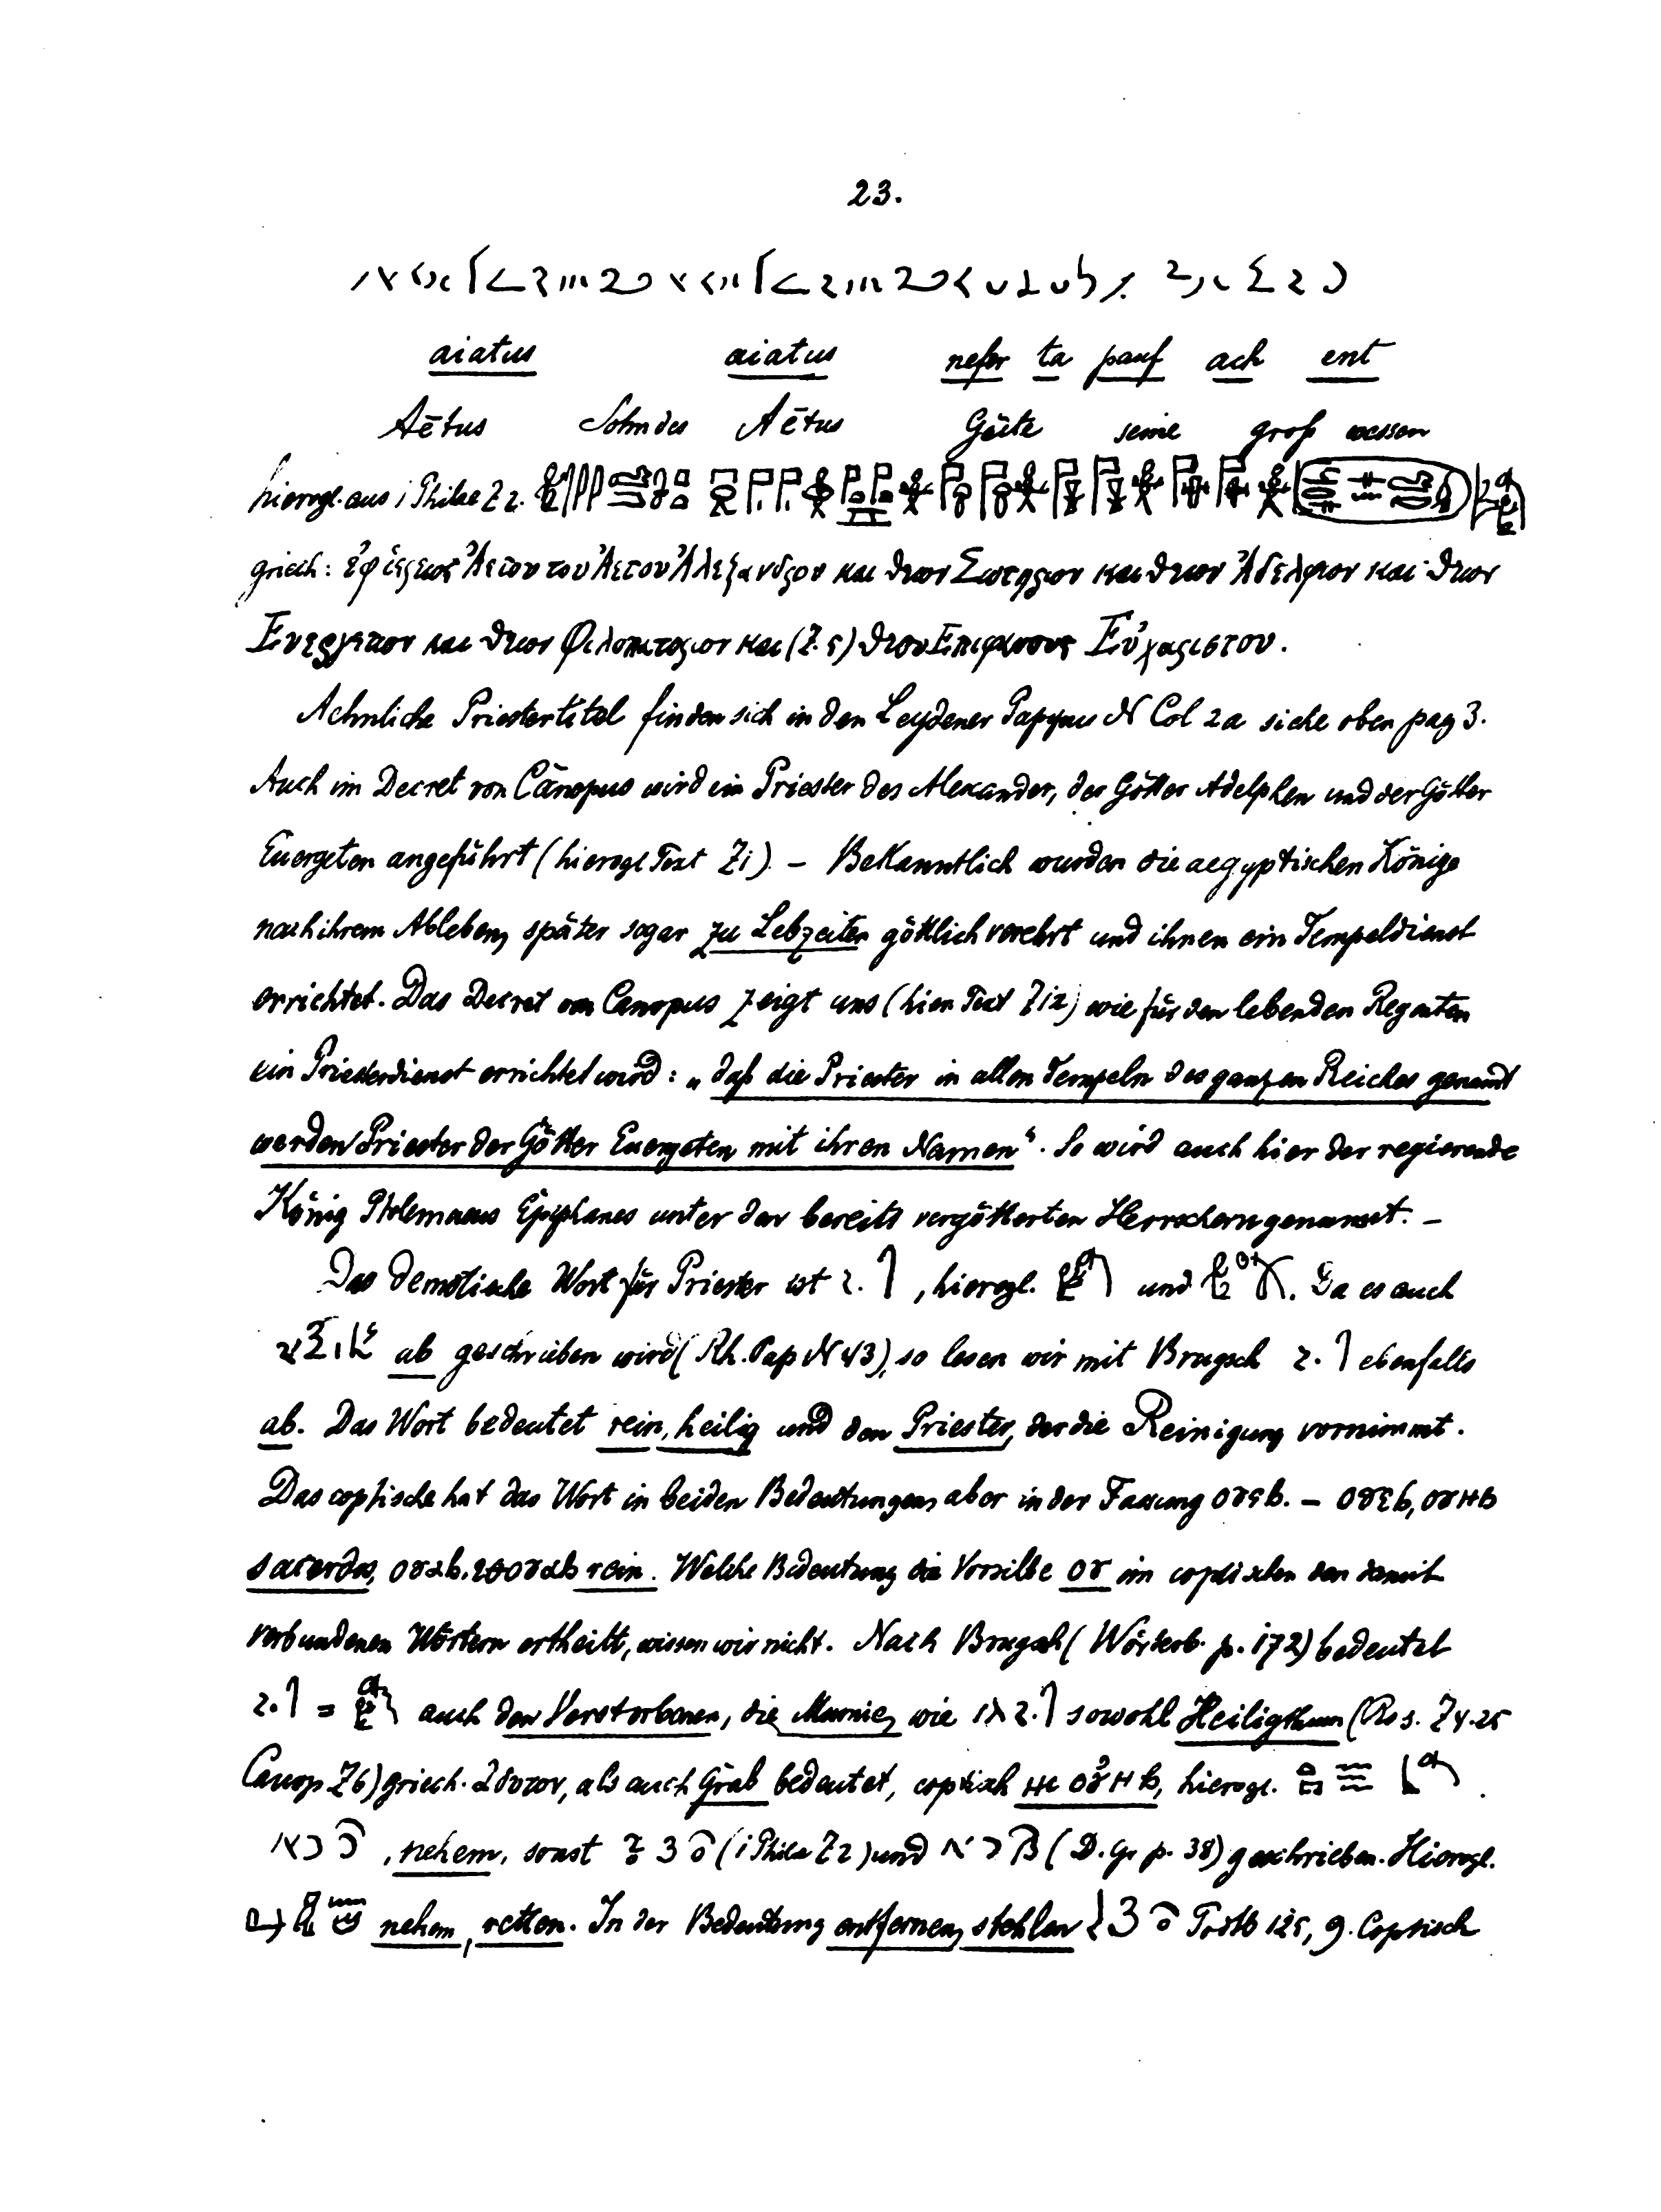 23.
aiatus aiatus nefer ta pauf ach ent
Aētus Sohn des Aētus Güte seine groß wessen
hierogl. aus i Philae Z 2.
griech: ἐφ ἱερεως Ἀετου του Ἀετου Ἀλεξανδρου και θεων Σωτηρων και θεων Ἀδελφων και θεων
Ευεργετων και θεων Φιλοπατορων και (Z. 5) θεου Επιφανους Εὐχαριστου.
Aehnliche Priestertitel finden sich in den Leydener Papyrus N Col 2a siehe oben pag 3.
Auch im Decret von Canopus wird ein Priester des Alexander, der Götter Adelphen und der Götter
Euergeten angeführt (hierogl Text Z1). – Bekanntlich wurden die aegyptischen Könige
nach ihrem Ableben, später sogar zu Lebzeiten göttlich verehrt und ihnen ein Tempeldienst
errichtet. Das Decret von Canopus zeigt uns (hier Text Z12) wie für den lebenden Regenten
ein Priesterdienst errichtet wird: „daß die Priester in allen Tempeln des ganzen Reiches genannt
werden Priester der Götter Euergeten mit ihren Namen“. So wird auch hier der regierende
König Ptolemaeus Epiphanes unter den bereits vergötterten Herrschern genannt. –
Das demotische Wort für Priester ist , hierogl. und . Da es auch
ab geschrieben wird (Rh. Pap N 43), so lesen wir mit Brugsch ebenfalls
ab. Das Wort bedeutet rein, heilig und den Priester, der die Reinigung vornimmt.
Das coptische hat das Wort in beiden Bedeutungen, aber in der Fassung ⲟⲩⲉⲃ. – ⲟⲩⲉⲃ, ⲟⲩⲏⲃ
sacerdos, ⲟⲩⲁⲃ. rein. Welche Bedeutung die Vorsilbe ⲟⲩ im coptischen den damit
verbundenen Wörtern ertheilt, wissen wir nicht. Nach Brugsch (Wörterb. p. 172) bedeutet
= auch den Verstorbenen, die Mumie, wie sowohl Heiligthum (Ros. Z 4. 25
Canop Z6) griech. ἀδυτον, als auch Grab bedeutet, coptisch ⲟⲩⲏⲃ, hierogl.
, nehem, sonst (i Philae Z 2) und (D. Gr p. 38) geschrieben. Hierogl.
nehem, retten. In der Bedeutung entfernen, stehlen Todtb 125, 9. Coptisch